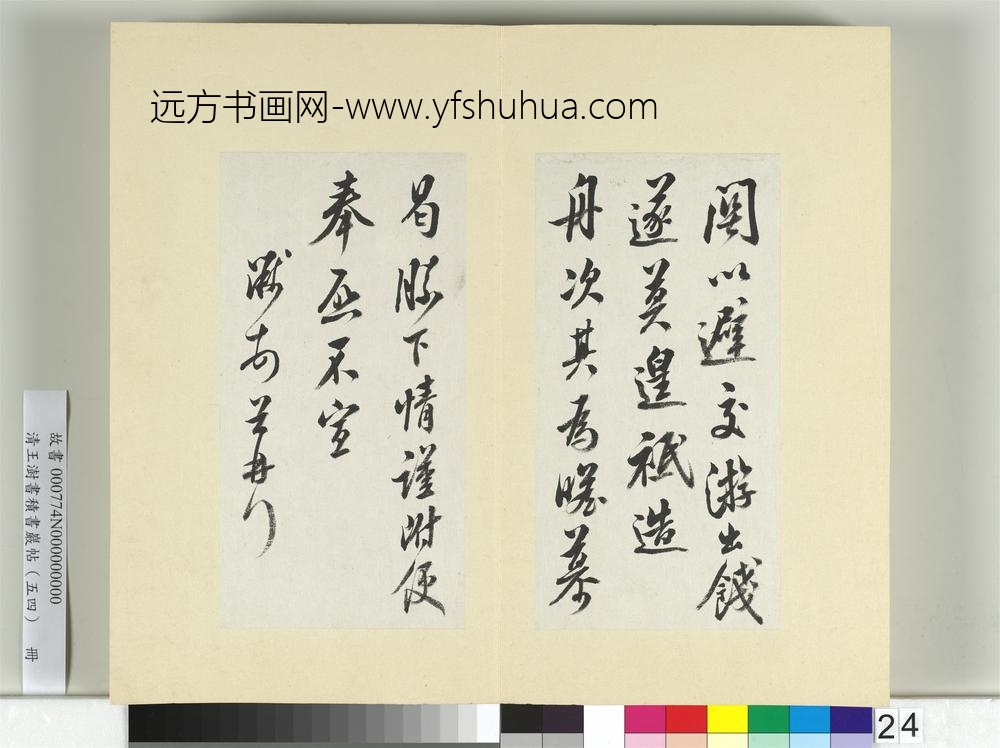 远方书画网-www.yfshuhua.com
闋以避交游出餞
遂莫遑祗造
舟次其為瞻慕
曷勝下情謹附便
奉啟不宣
故書 000774N000000000
清王澍書積書巖帖(五四) 冊
24